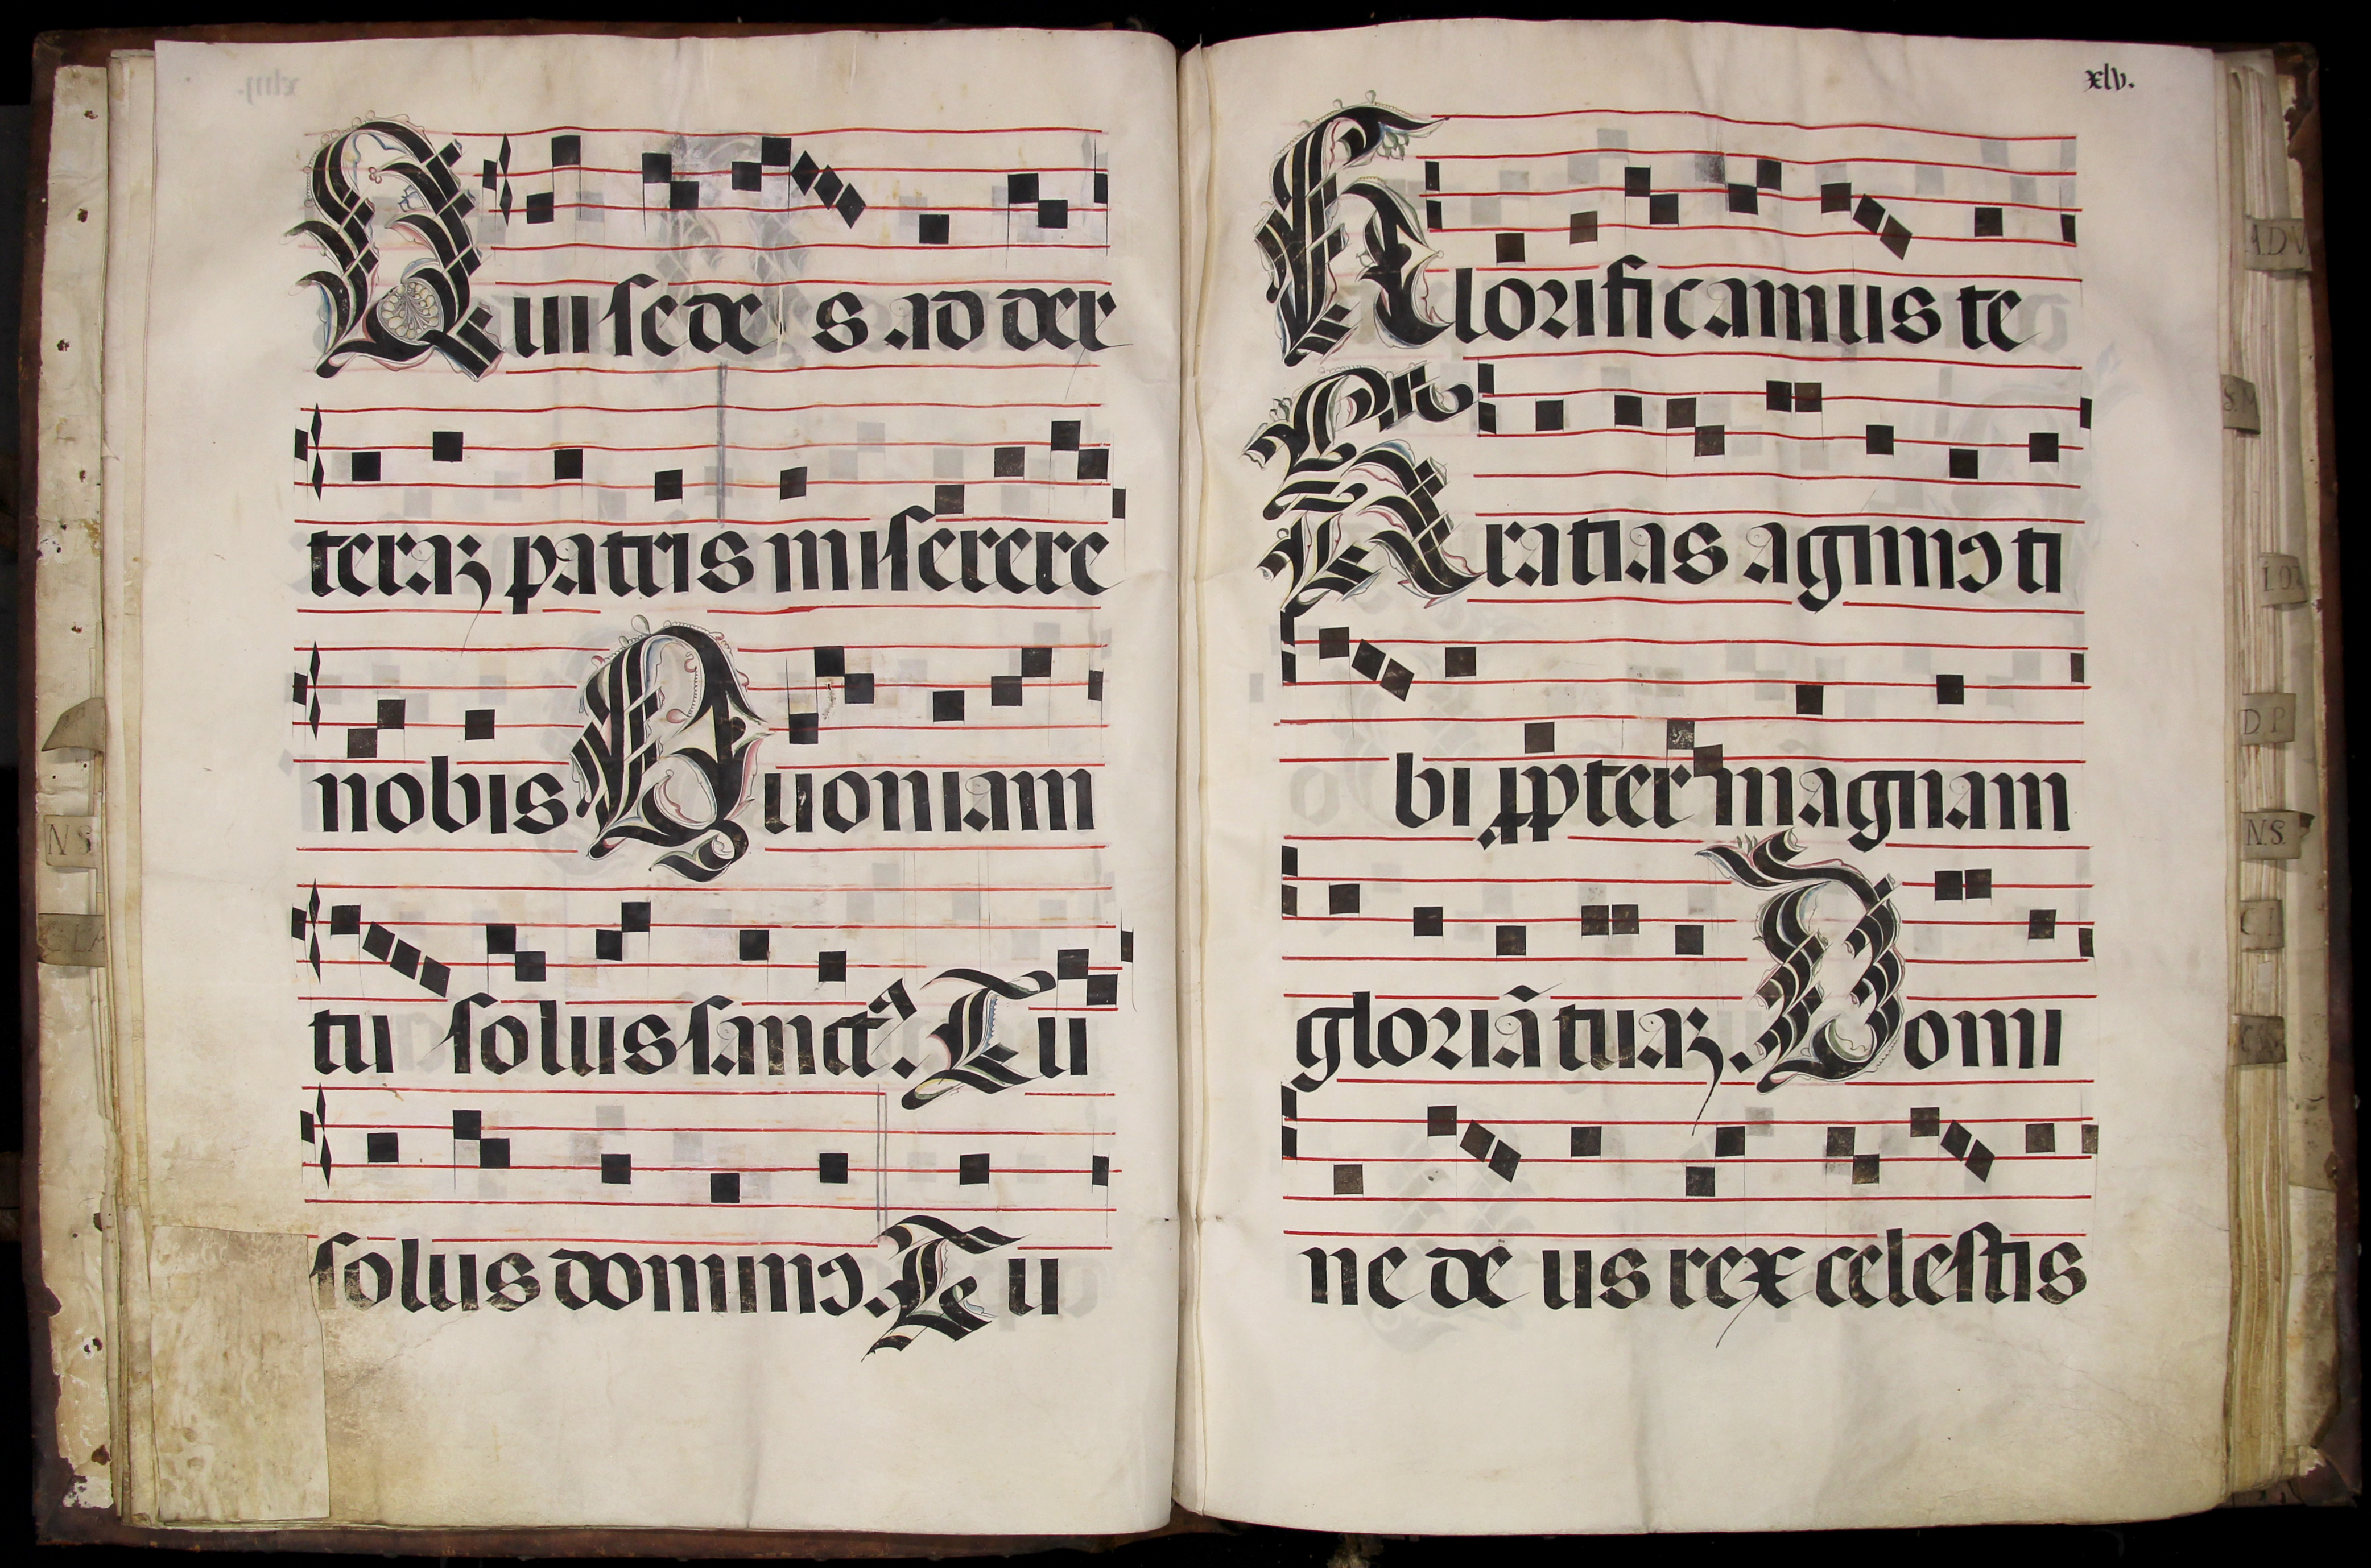 xliiij.
Qui sede s ad dex
teraz patris miserere
nobis Quoniam
tu solus sanctꝰ. Tu
solus dominꝰ. Tu
xlv.
Glorificamus te
Gratias agimꝰ ti
bi ꝓpter magnam
gloriã tuaz. Domi
ne de us rex celestis
N S
S.
D P
N.S.